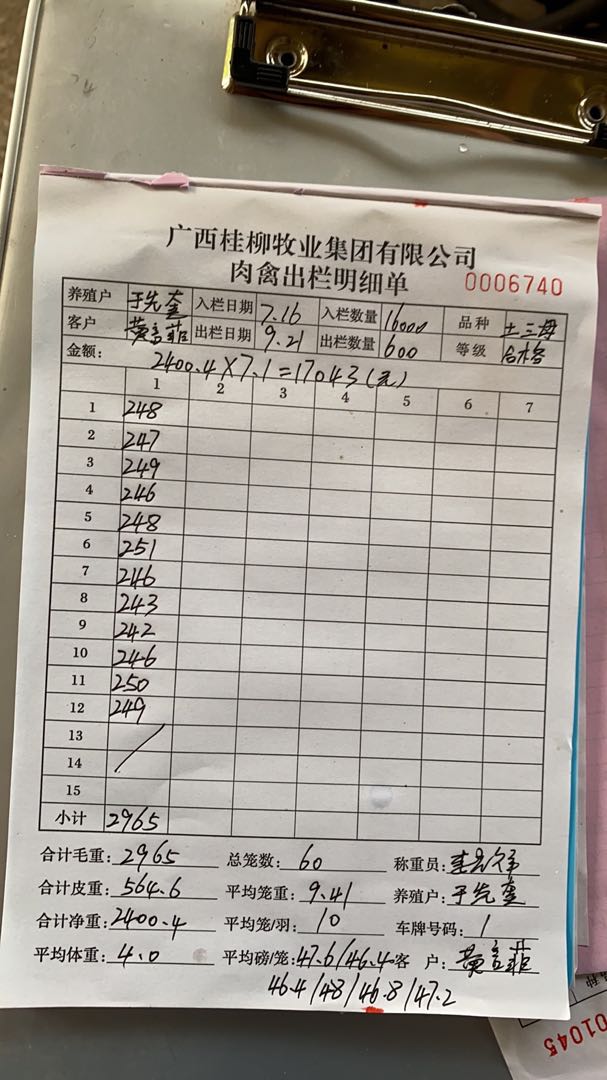 广西桂柳牧业集团有限公司
肉禽出栏明细单 0006740
养殖户 于先奎 入栏日期 7.16 入栏数量 16000 品种 土三母
客户 黄言菲 出栏日期 9.21 出栏数量 600 等级 合格
金额: 2400.4×7.1=17043(元)
1 2 3 4 5 6 7
1 248
2 247
3 249
4 246
5 248
6 251
7 246
8 243
9 242
10 246
11 250
12 249
13
14
15
小计 2965
合计毛重: 2965 总笼数: 60 称重员:
合计皮重: 564.6 平均笼重: 9.41 养殖户: 于先奎
合计净重: 2400.4 平均笼/羽: 10 车牌号码: /
平均体重: 4.0 平均磅/笼: 47.6/46.4 客 户: 黄言菲
46.4/48/46.8/47.2
01045